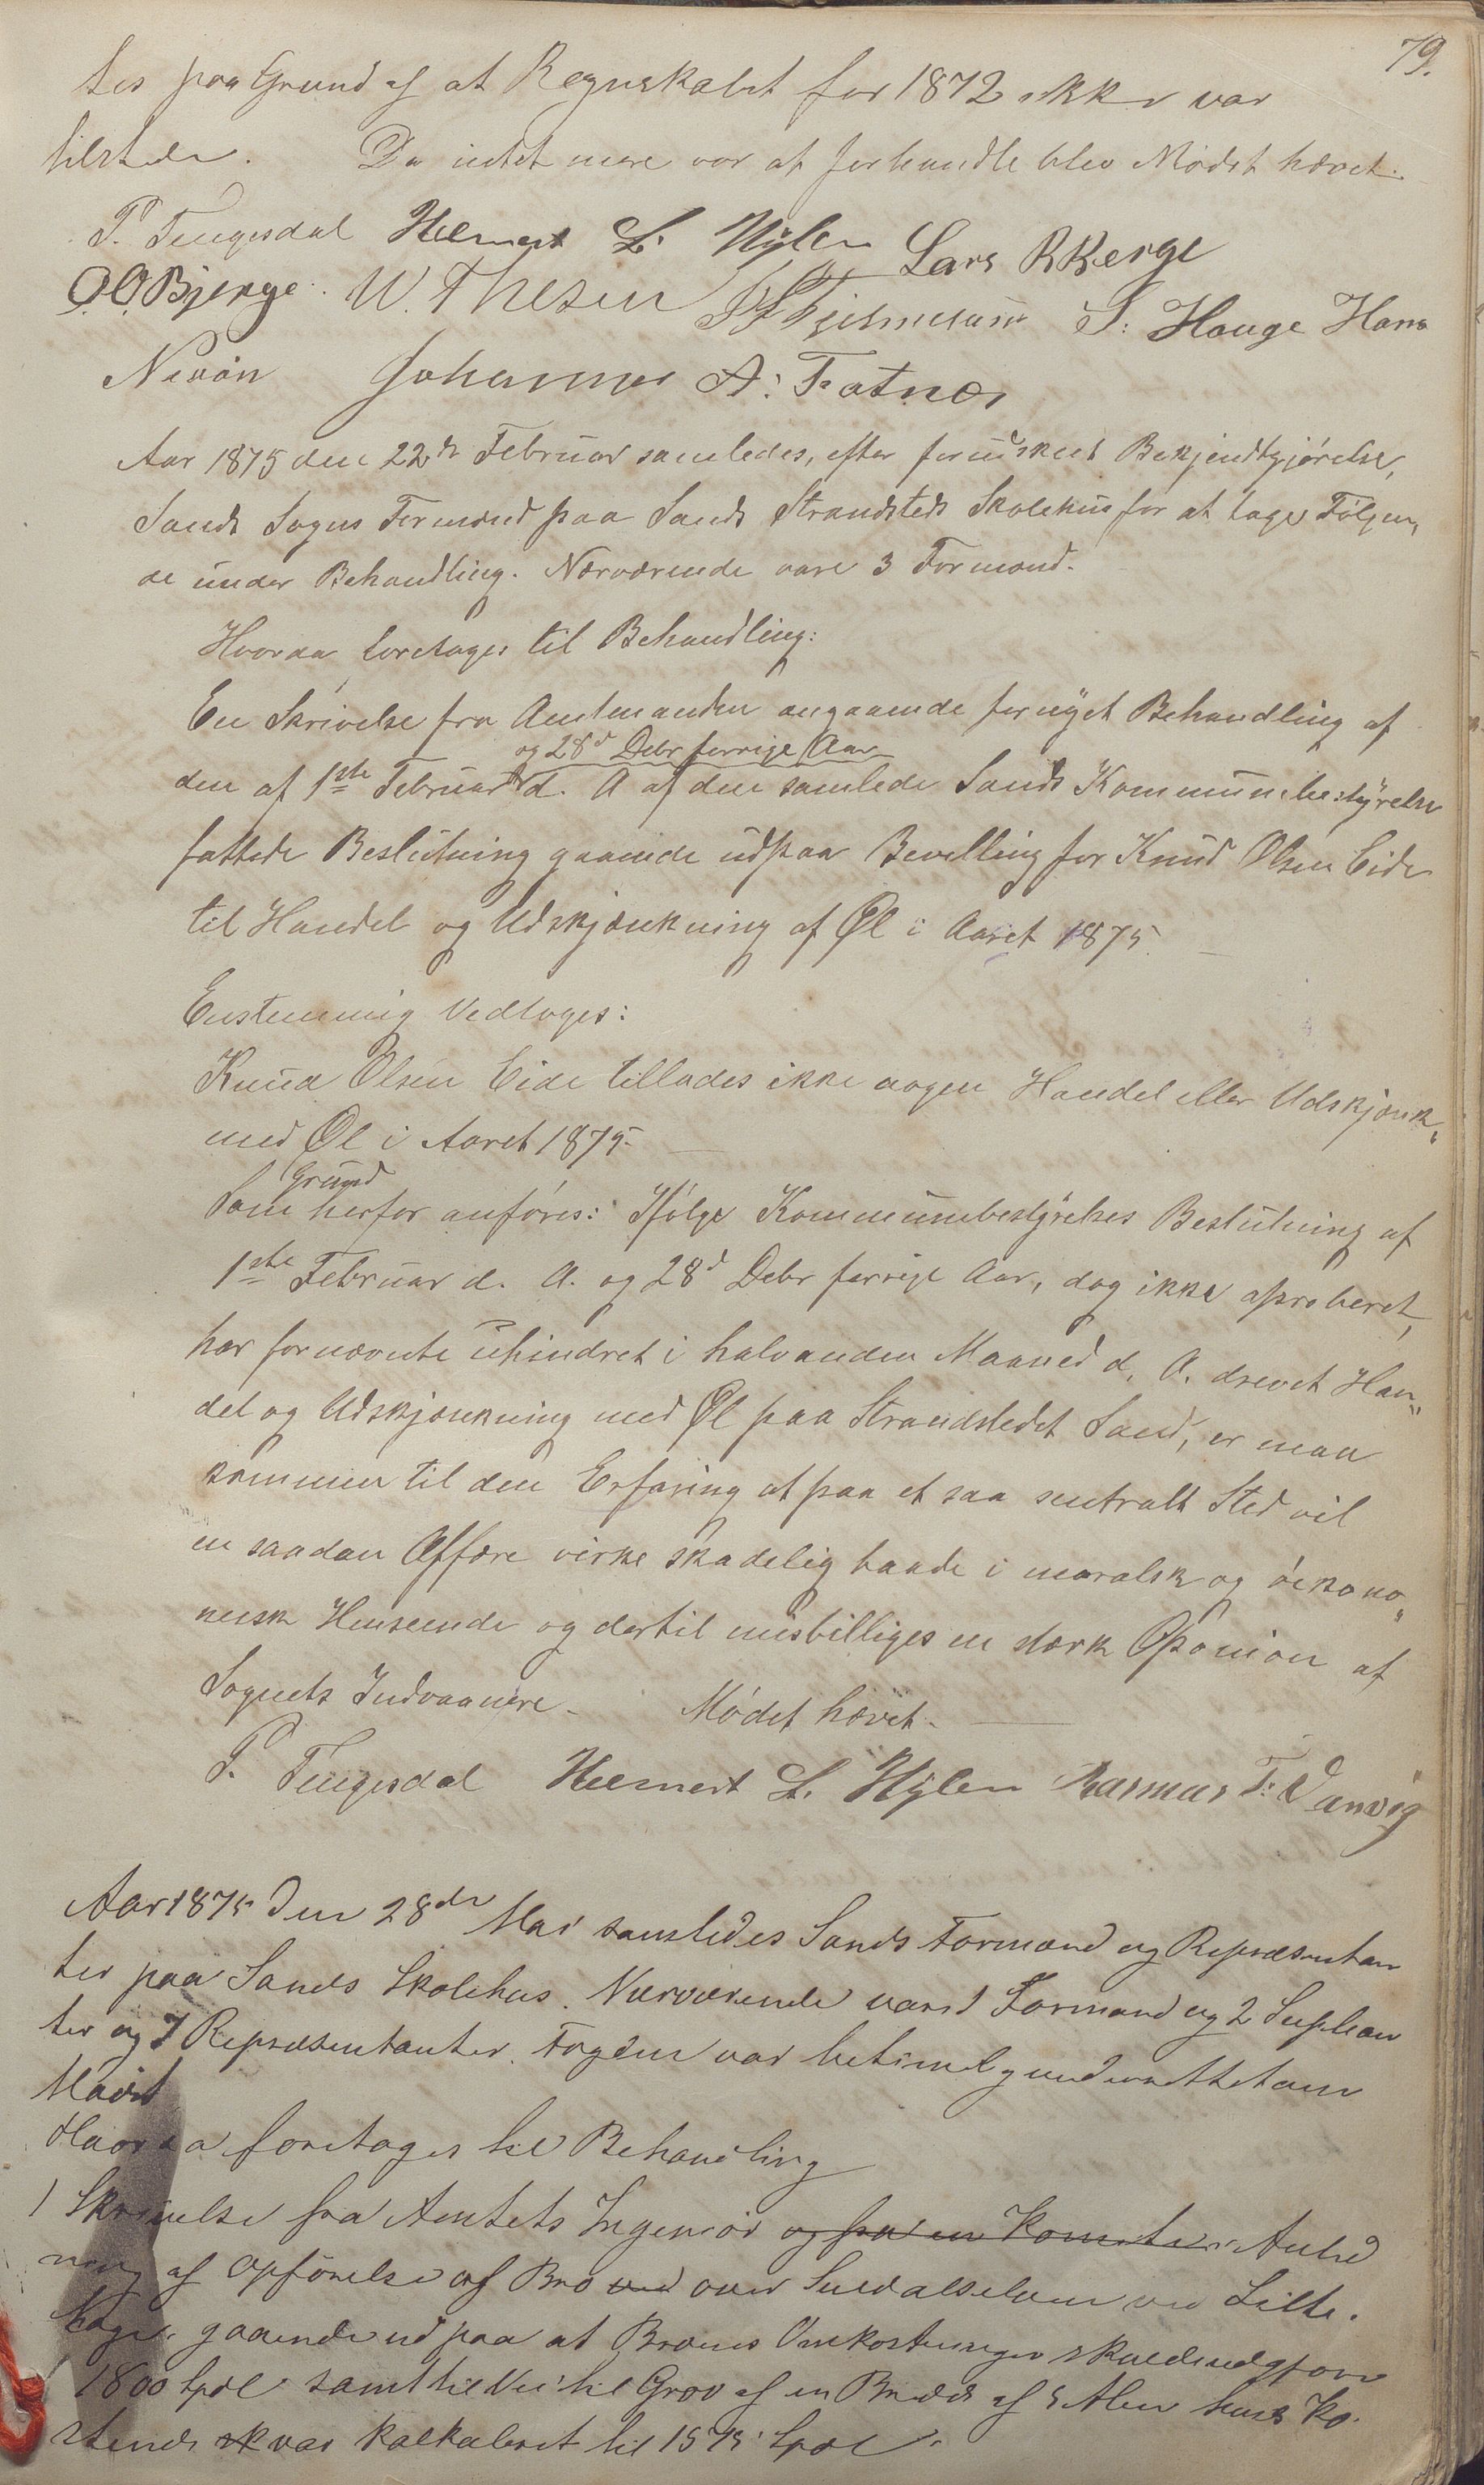 79.
tes paa Grund af at Regnskabet for 1872 ikke var
tilstede. Da intet mere var at forhandle blev Mødet hævet.
P. Tengesdal Helmert L. Hylen Lars R Berge
O.O. Bjerge. W. Thesen S. Hauge Hans
Nevøn Johannes A. Fatnes
Aar 1875 den 22de Februar samledes, efter forudskeet Bekjendtgjørelse,
Sands Sogns Formænd paa Sands Strandsteds Skolehus for at tage Følgen„
de under Behandling. Nærværende vare 3 Formænd.
Hvorda foretages til Behandling:
En Skrivelse fra Amtmanden angaaende fornyet Behandling af
og 28d Debr forrige Aar
den af 1ste Februar d. A af den samlede Sands Kommunebestyrelse
fattede Beslutning gaaende udpaa Bevilling for Knud Olsen Eide
til Handel og Udskjænkning af Øl i Aaret 1875.
Enstemmig Vedtoges:
Knud Olsen Eide tillades ikke nogen Handel eller Udskjænk„
med Øl i Aaret 1875.
Grund
Som herfor anføres: Ifølge Kommunebestyrelses Beslutning af
1ste Februar d. A. og 28d Debr forrige Aar, dog ikke aproberet,
har fornævnte uhindret i halvanden Maaned d. A. drevet Han„
del og Udskjænkning med Øl paa Strandstedet Sand, er man
kommen til den Erfaring at paa et saa sentralt Sted vil
en saadan Affære virke skadelig baade i moralsk og økono„
misk Henseende og dertil misbilliges en stærk Oponion af
Sognets Indvaanere. Mødet hævet.
P. Tengesdal Helmert L. Hylen Rasmus T. Vanvig
Aar 1875 den 28de Mai samledes Sands Formænd og Repræsentan
ter paa Sands Skolehus. Nærværende vare 1 Formand og 2 Suplean
ter og 7 Repræsentanter. Fogden var betimelig underrettet om
Mødet
Hvorda foretages til Behandling
1 Skrivelse fra Amtets Ingeniør og fra en Komite Anled
ning af Opførelse af Bro ved over Suldalselven ved Lille.
gaaende ud paa at Broens Omkostninger skulde udgjøre
1800 Spdl samt til Vei til Grov af en Bredde af 5 Alen hvis Ko.
stende sk var kalkuleret til 1575 Spdl.